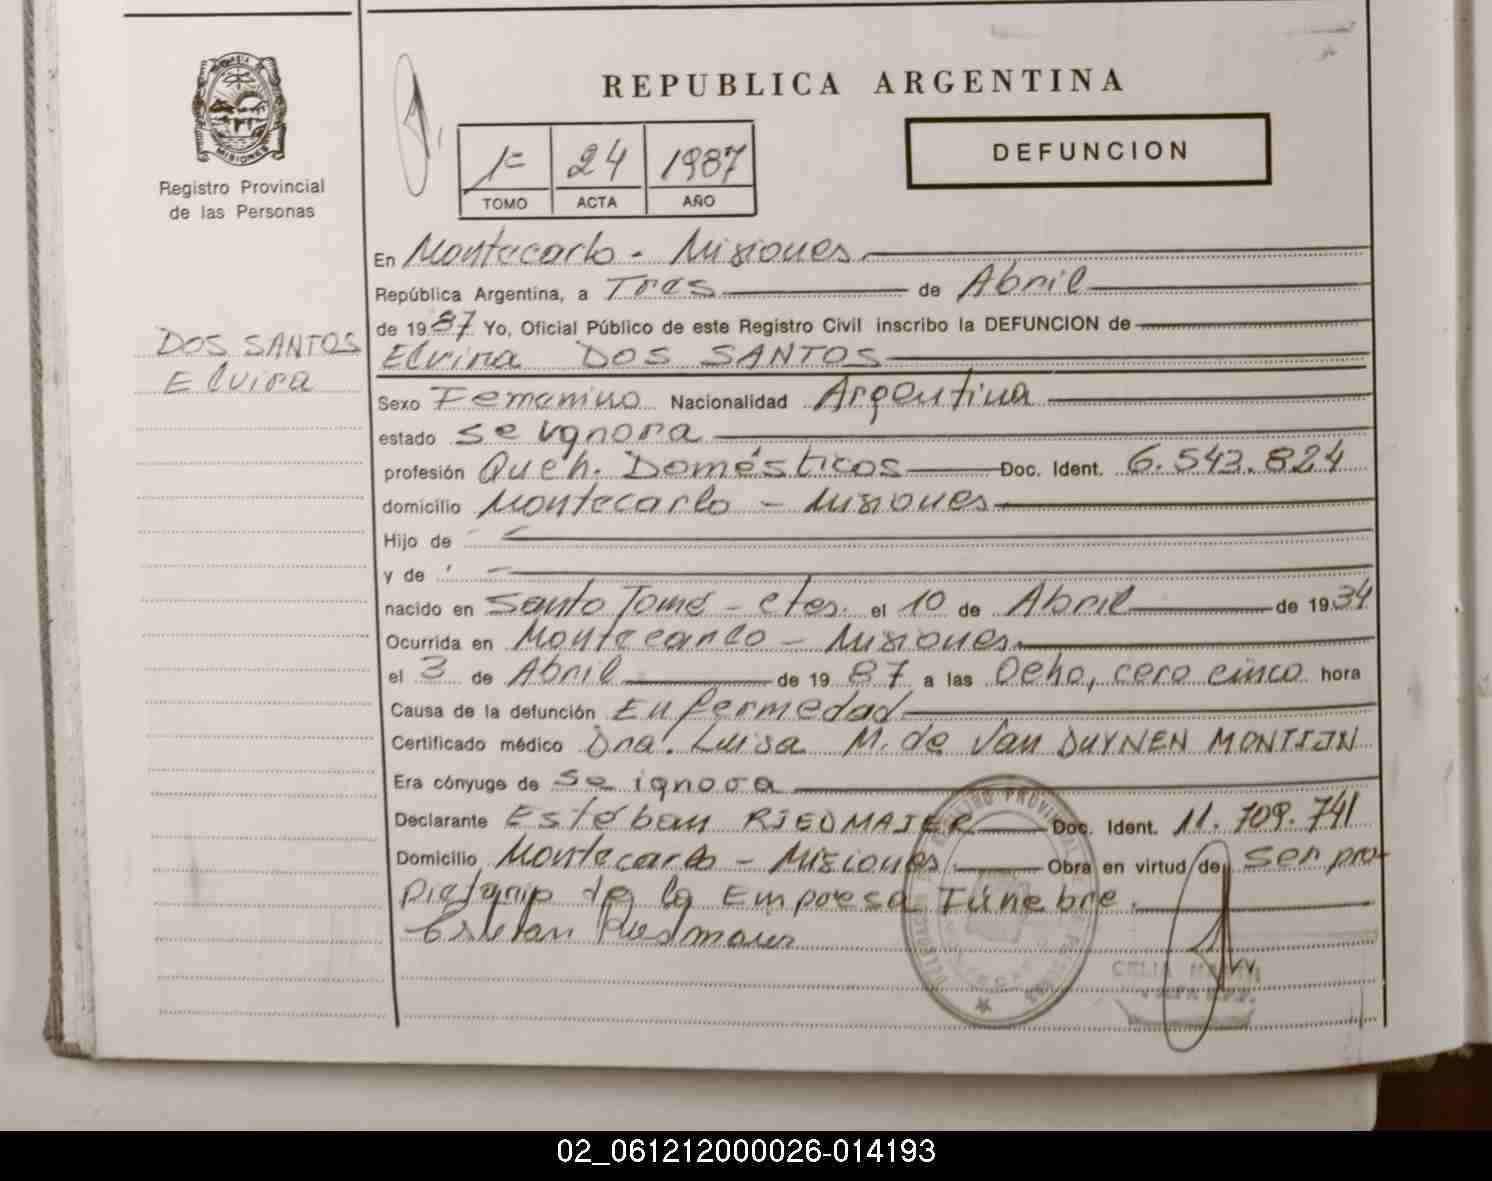 REPUBLICA ARGENTINA
MISIONES
Registro Provincial
de las Personas
DEFUNCION
1= 24 1987
TOMO ACTA AÑO
DOS SANTOS
Elvira
En Montecarlo - Misiones
República Argentina, a Tres de Abril
de 1987 Yo, Oficial Público de este Registro Civil inscribo la DEFUNCION de
Elvira DOS SANTOS
Sexo Femenino Nacionalidad Argentina
estado se ignora
profesión Queh. Domésticos Doc. Ident. 6.543.824
domicilio Montecarlo - Misiones
Hijo de
y de
nacido en Santo Tomé - Ctes. el 10 de Abril de 1934
Ocurrida en Montecarlo - Misiones.
el 3 de Abril de 1987 a las Ocho, cero cinco hora
Causa de la defunción Enfermedad
Certificado médico Dra. Luisa M. de Van DUYNEN MONTIJN
Era cónyuge de se ignora
Declarante Esteban RIEDMAIER Doc. Ident. 11.709.741
Domicilio Montecarlo - Misiones. Obra en virtud de ser pro-
pietario de la Empresa Fúnebre.
Esteban Riedmaier
CELIA
02_061212000026-014193